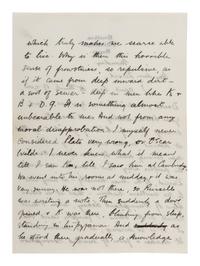 which truly makes me scarce able
to live Why is there this horrible
sense of frowstiness, so repulsive, as
if it came from deep inward dirt –
a sort of sewer – deep in men like K &
B & D.G. It is something almost
unbearable to me. And not from any
moral disapprobation. I myself never
considered Plato very wrong, or Oscar
Wilde. I never knew what it meant
till I saw K., till I saw him at Cambridge.
We went into his rooms at midday, & it was
very sunny. He was not there, so Russell
was writing a note. Then suddenly a door
opened & K. was there, blinking from sleep,
standing in his pyjamas. And
as he stood there gradually a knowledge